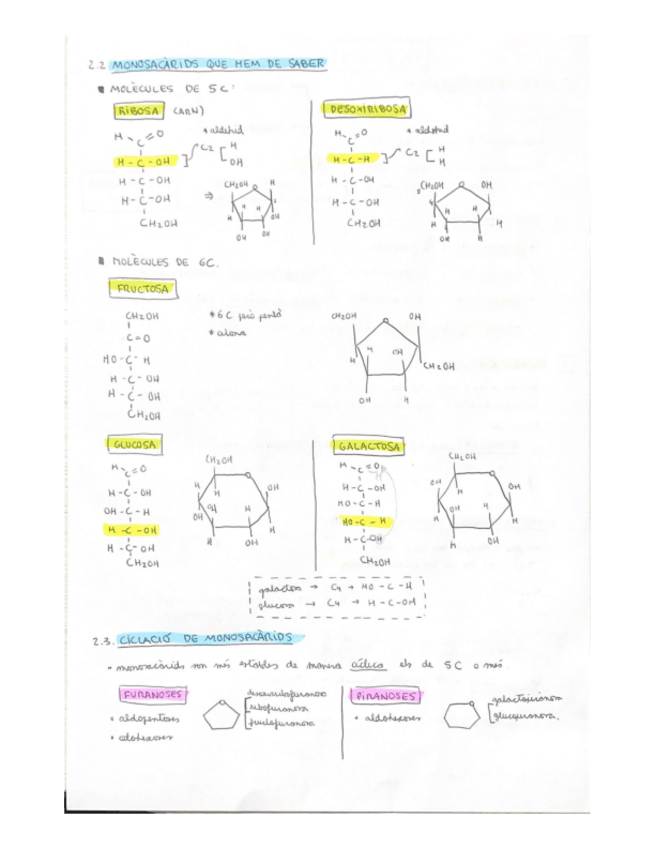 2.2 MONOSACÀRIDS QUE HEM DE SABER
MOLÈCULES DE 5C:
RIBOSA (ARN)
* aldehid
H C =O
H - C - OH
C2 [ H OH
H - C - OH
H - C - OH
CH2OH
⇒
CH2OH O H
H H
H OH
OH OH
DESOXIRIBOSA
* aldehid
H C =O
H - C - H
C2 [ H H
H - C - OH
H - C - OH
CH2OH
CH2OH O OH
H H
H H
OH H
MOLÈCULES DE 6C.
FRUCTOSA
CH2OH
C=O
HO - C - H
H - C - OH
H - C - OH
CH2OH
* 6C però pentà
CH2OH O OH
H OH
H CH2OH
OH H
GLUCOSA
H C =O
H - C - OH
OH - C - H
H - C - OH
H - C - OH
CH2OH
CH2OH
O
H H OH
OH OH H H
H OH
GALACTOSA
H C =O
H - C - OH
HO - C - H
HO - C - H
H - C - OH
CH2OH
CH2OH
O
OH H OH
H OH H H
H OH
galactosa → C4 → HO - C - H
glucosa → C4 → H - C - OH
2.3. CICLACIÓ DE MONOSACÀRIDS
- monosacàrids son més estables de manera cíclica els de 5C o més
FURANOSES
* aldopentoses
* cetohexoses
O
desoxiribofuranosa
ribofuranosa
fructofuranosa
PIRANOSES
* aldohexoses
O
galactopiranosa
glucopiranosa.